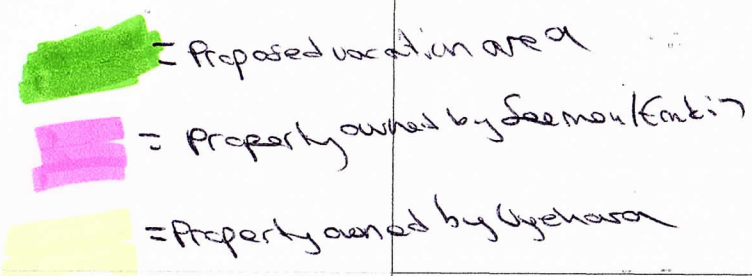 = Proposed vacation area
= Property owned by Seeman/Entin
= Property owned by Uyehara